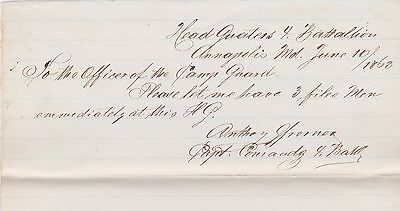 Head Quaters 4. Battallion
Annapolis Md. June 10/
1863
To the Officer of the Camp Guard.
Please let me have 3 files Men
emmediately at this H Q.
Anthony
Capt. Comandg 4. Batt.